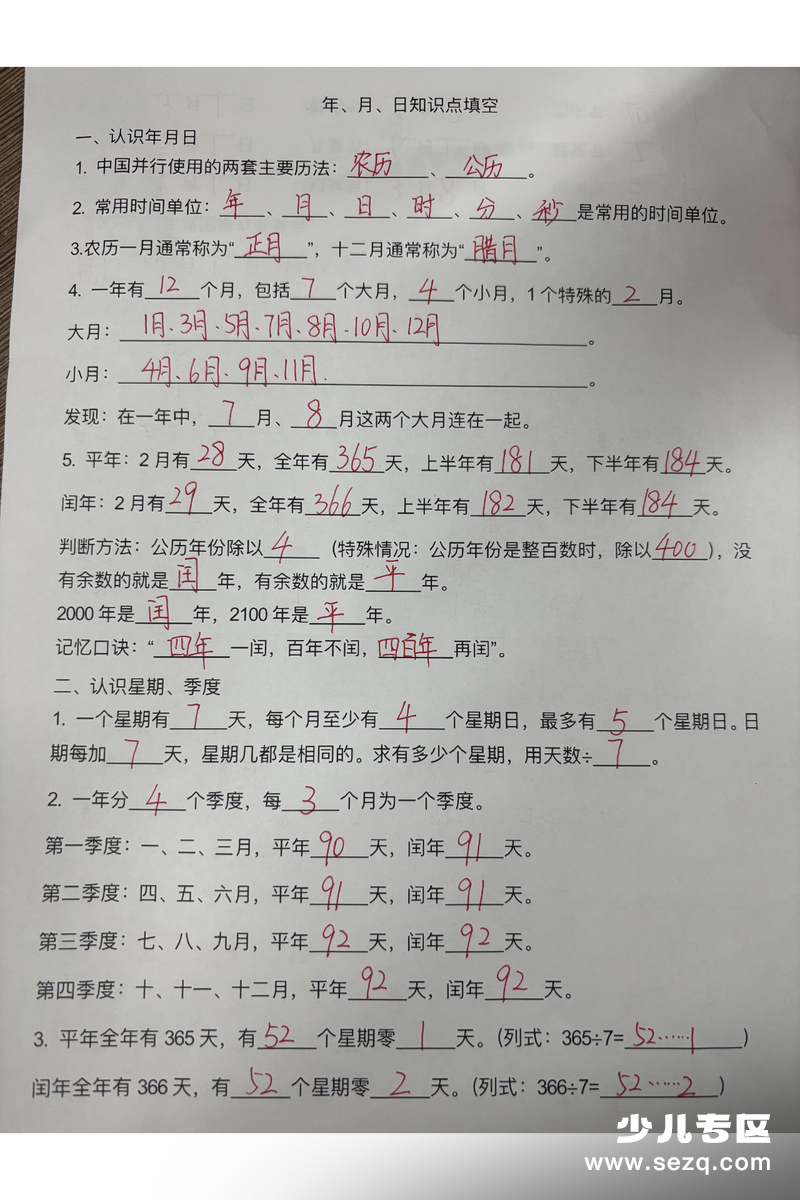 年、月、日知识点填空
一、认识年月日
1. 中国并行使用的两套主要历法：农历、公历。
2. 常用时间单位：年、月、日、时、分、秒是常用的时间单位。
3.农历一月通常称为“正月”，十二月通常称为“腊月”。
4. 一年有12个月，包括7个大月，4个小月，1个特殊的2月。
大月：1月、3月、5月、7月、8月、10月、12月。
小月：4月、6月、9月、11月.。
发现：在一年中，7月、8月这两个大月连在一起。
5. 平年：2月有28天，全年有365天，上半年有181天，下半年有184天。
闰年：2月有29天，全年有366天，上半年有182天，下半年有184天。
判断方法：公历年份除以4（特殊情况：公历年份是整百数时，除以400），没
有余数的就是闰年，有余数的就是平年。
2000年是闰年，2100年是平年。
记忆口诀：“四年一闰，百年不闰，四百年再闰”。
二、认识星期、季度
1. 一个星期有7天，每个月至少有4个星期日，最多有5个星期日。日
期每加7天，星期几都是相同的。求有多少个星期，用天数÷7。
2. 一年分4个季度，每3个月为一个季度。
第一季度：一、二、三月，平年90天，闰年91天。
第二季度：四、五、六月，平年91天，闰年91天。
第三季度：七、八、九月，平年92天，闰年92天。
第四季度：十、十一、十二月，平年92天，闰年92天。
3. 平年全年有365天，有52个星期零1天。（列式：365÷7=52……1）
闰年全年有366天，有52个星期零2天。（列式：366÷7=52……2）
少儿专区
www.sezq.com